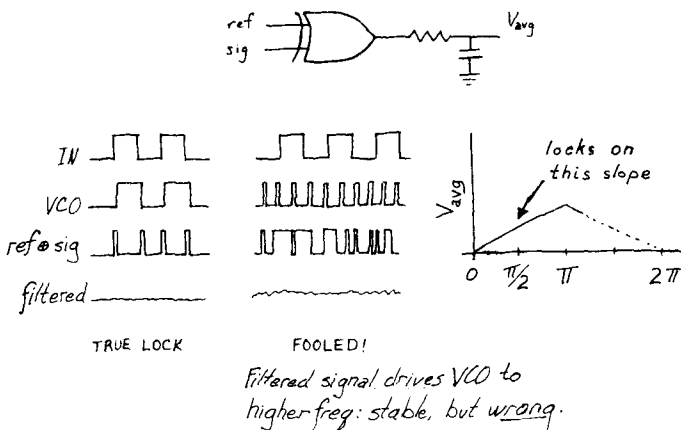 ref
sig
Vavg
IN
VCO
ref⊕sig
filtered
TRUE LOCK
FOOLED!
Vavg
locks on
this slope
0
π/2
π
2π
Filtered signal drives VCO to
higher freq: stable, but wrong.